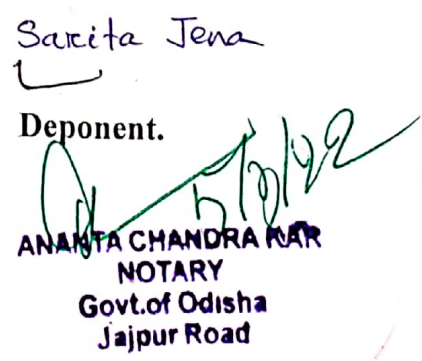 Sarita Jena
Deponent.
ANANTA CHANDRA KAR
NOTARY
Govt.of Odisha
Jajpur Road